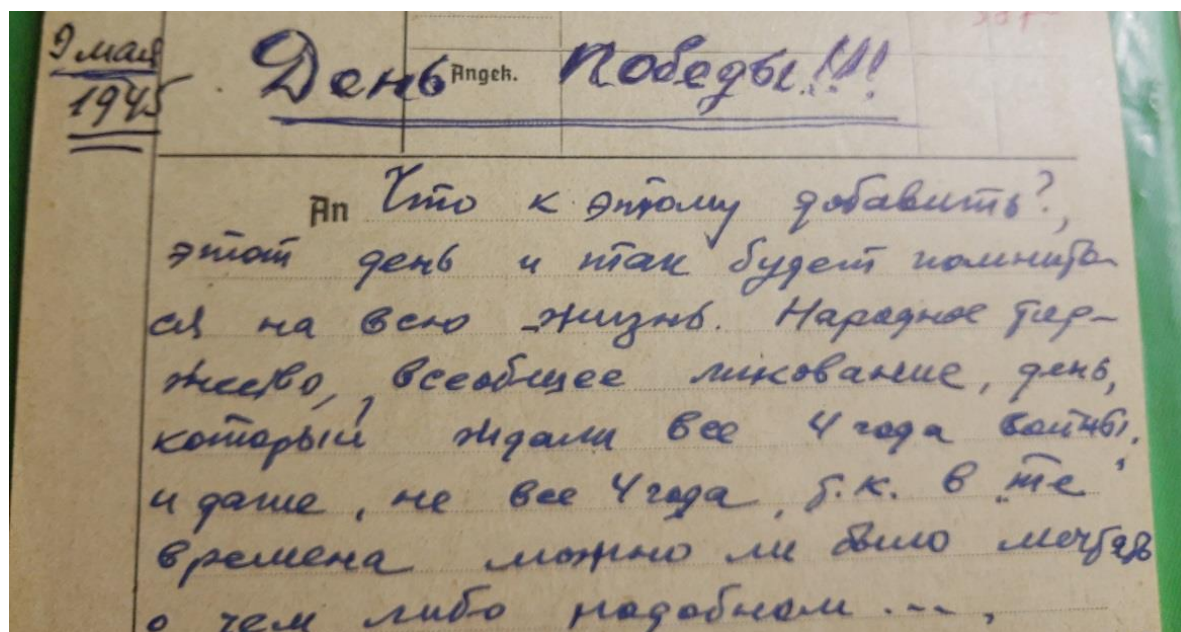 9 мая
1945
День Angek. Победы!!!
An Что к этому добавить?,
этот день и так будет помнить
ся на всю жизнь. Народное тор-
жество, всеобщее ликование, день,
который ждали все 4 года войны,
и даже, не все 4 года, т.к. в те
времена можно ли было мечтать
о чем либо подобном...,